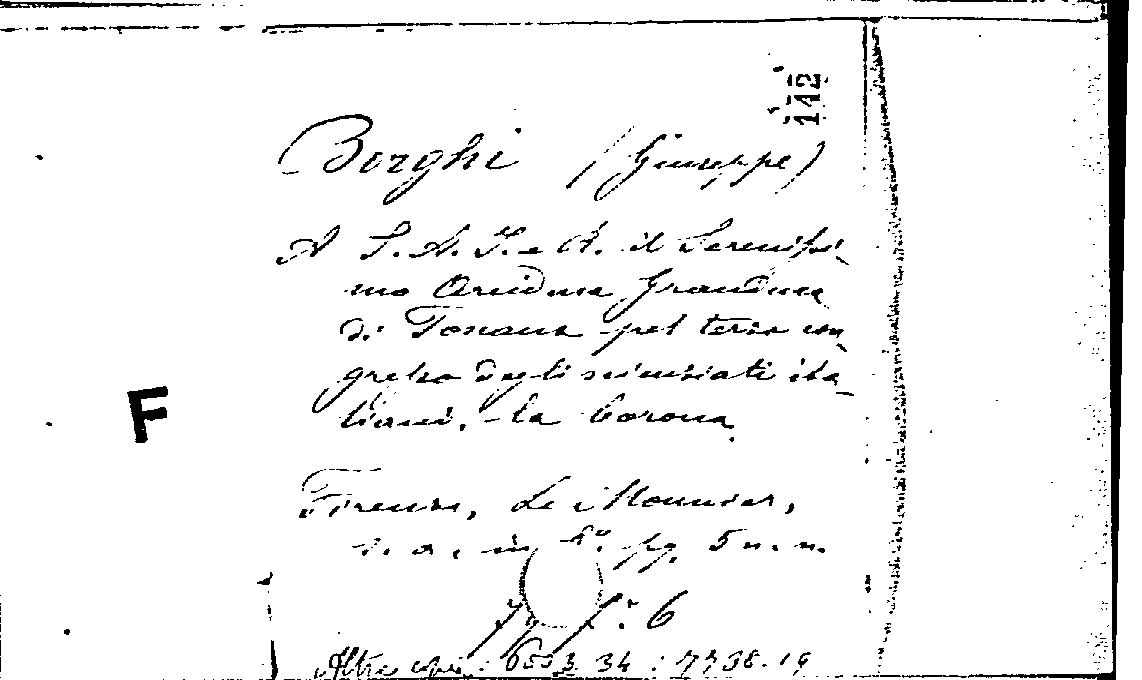 142
Borghi (Giuseppe)
A S. A. I. e R. il Serenissi-
mo Arciduca Granduca
di Toscana pel terzo con-
gresso degli scienziati ita-
liani, la Corona.
F
Firenze, Le Monnier,
s. a., in 4°. pg. 5 n. n.
f.° 6
Altre copie: 34 : 7798.19